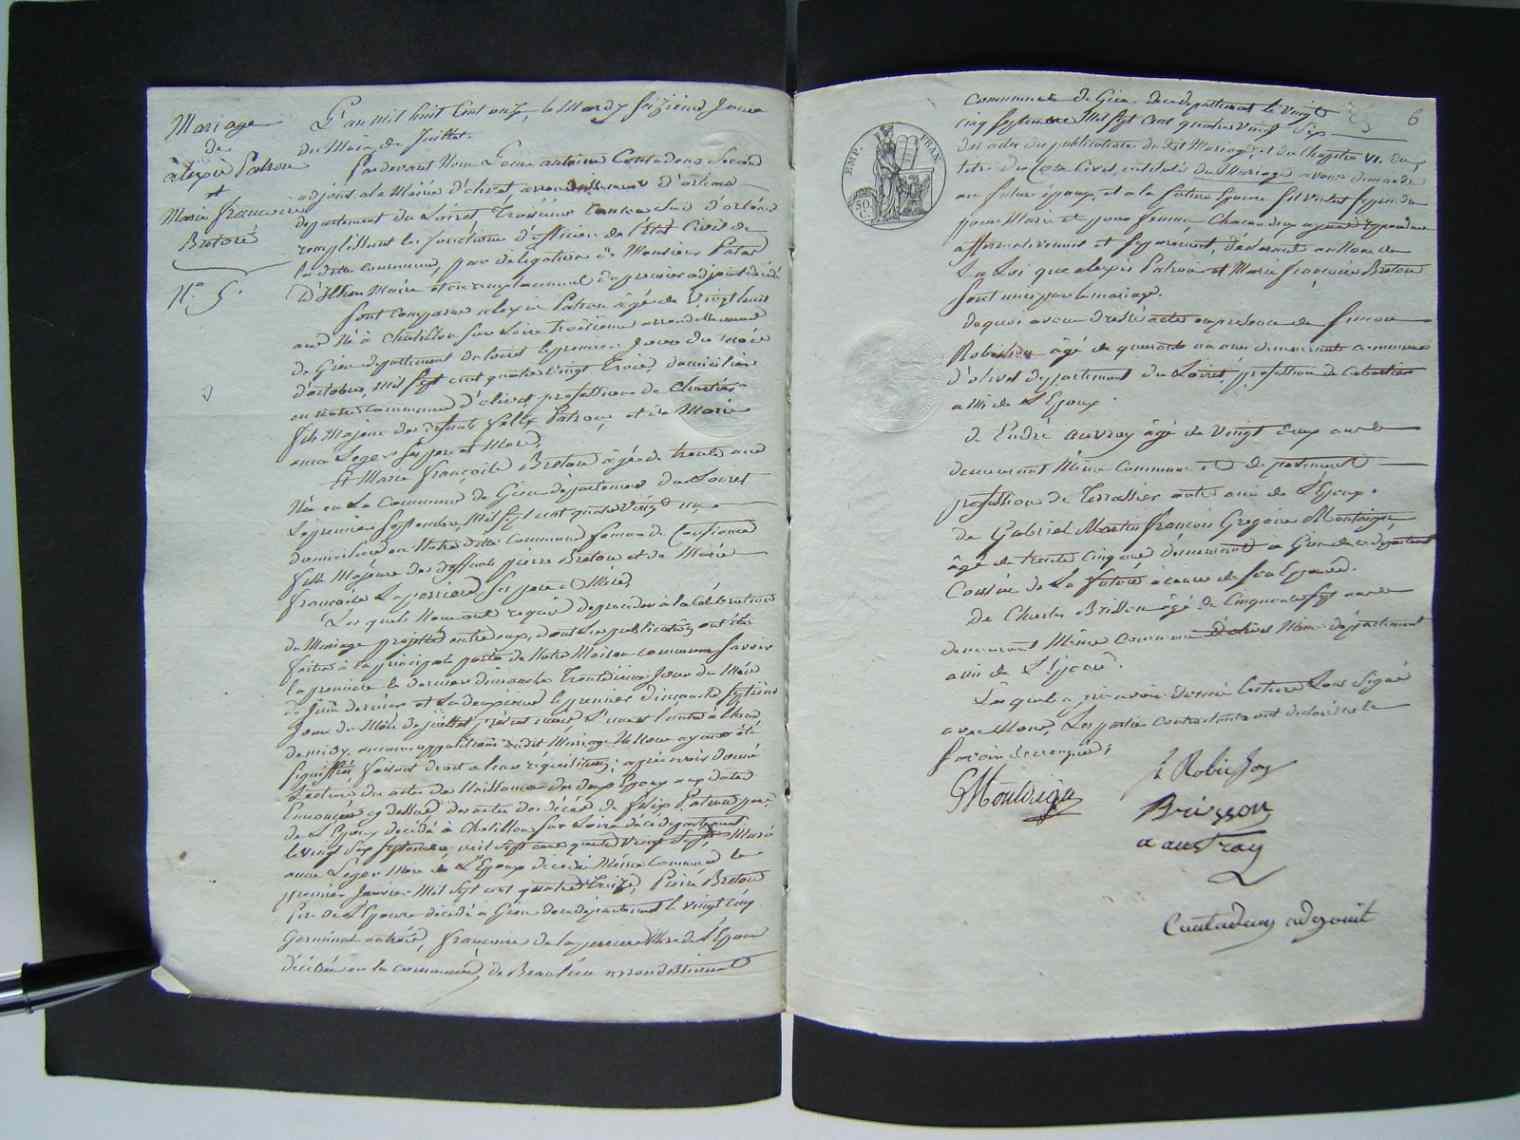 Mariage
de
alexis Patron
et
Marie francoise
Bretone
N° 5.
L'an mil huit Cent onze, le Mardy seizieme Jour
du Mois de Juillet.
Pardevant Nous antoine Contadeux Second
adjoint a la Mairie d'olivet arrondissement d'orleans
departement du Loiret Troisieme Canton Sud d'orleans
remplissant les fonctions d'officier de l'Etat Civil de
la dite commune, par délégation de Monsieur
Maire et en remplacement du premier adjoint décédé
Sont comparus alexis Patron agé de Vingt huit
ans Né à Chatillon Sur Loire troisieme arrondissement
de Gien département du loiret le premier Jour du mois
d'octobre, Mil Sept cent quatre vingt trois domicilié
en notre commune d'olivet profession de
fils Majeur des deffunts felix Patron, et de Marie
anne Leger Ses pere et Mere,
Et Marie françoise Bretone agée de trente ans
Née en La Commune de Gien departement du Loiret
Le premier Septembre, Mil Sept cent quatre Vingt un
domiciliée en Notre dite Commune femme de Confiance
fille Majeure des deffunts pierre Bretone et de Marie
françoise Laperriere Ses pere et Mere
Les quels Nous ont requis de proceder à la Celebration
du Mariage projetté entre eux, dont les publications ont été
faites à la principale porte de Notre Maison commune Savoir
la premiere le dernier dimanche Trentieme Jour du Mois
de Juin dernier et La deuxieme le premier Dimanche Septieme
Jour du Mois de juillet, présent mois, à L'heure de
de midy, aucune opposition au dit Mariage Ne Nous ayant été
Signiffiée, faisant droit a leur requisition; après avoir donné
Lecture des actes de Naissance des deux Epoux aux dates
Enoncées cy dessus des actes des décès de felix Patron pere
de L'Epoux décédé à Chatillon Sur Loire
le Vingt Six Septembre, mil Sept cent quatre Vingt Sept, Marie
anne Leger Mere de L'Epoux décédée Même Commune le
premier Janvier Mil Sept cent quatre treize, Pierre Bretone
Pere de L'Epouse décédé a Gien departement le vingt cinq
Germinal an trois, françoise de la perriere Mere de L'Epouse
décédée en la commune, de Beaulieu arrondissement
6
Commune de Gien departement le Vingt
cinq Septembre Mil Sept Cent quatre Vingt Six
des actes de publications du dit Mariage, et du Chapitre VI. du
titre du Code Civil, intitulé du Mariage avons demandé
au futur époux, et a la future Epouse S'il veulent Se prendre
pour Mari et pour femme Chacun deux ayant répondu
affirmativement et Séparément, déclarons au Nom de
La Loi que alexis Patron et Marie françoise Bretone
Sont unis par le mariage.
De quoi avons dressé acte en présence de Simon
Robichon âgé de quarante un ans demeurant commune
d'olivet departement du Loiret, profession de
ami de L'Epoux.
de André auvray âgé de vingt deux ans
demeurant Même Commune et departement
profession de Terrassier autre ami de L'Epoux.
de Gabriel Martin françois Gregoire Montaigu
âgé de trente Cinq ans demeurant a Gien departement
Cousin de La future a cause de Son Epouse.
De Charles Brisson âgé de Cinquante Sept ans
demeurant Même Commune d'olivet Même departement
ami de L'Epouse.
Lesquels après avoir donné lecture L'ont Signé
avec Nous, Les parties Contractantes ont déclaré ne le
Savoir
GMontaigu
S Robichon
Brisson
a auvray
Contadeux adjoint
EMP. FRAN.
50 C.